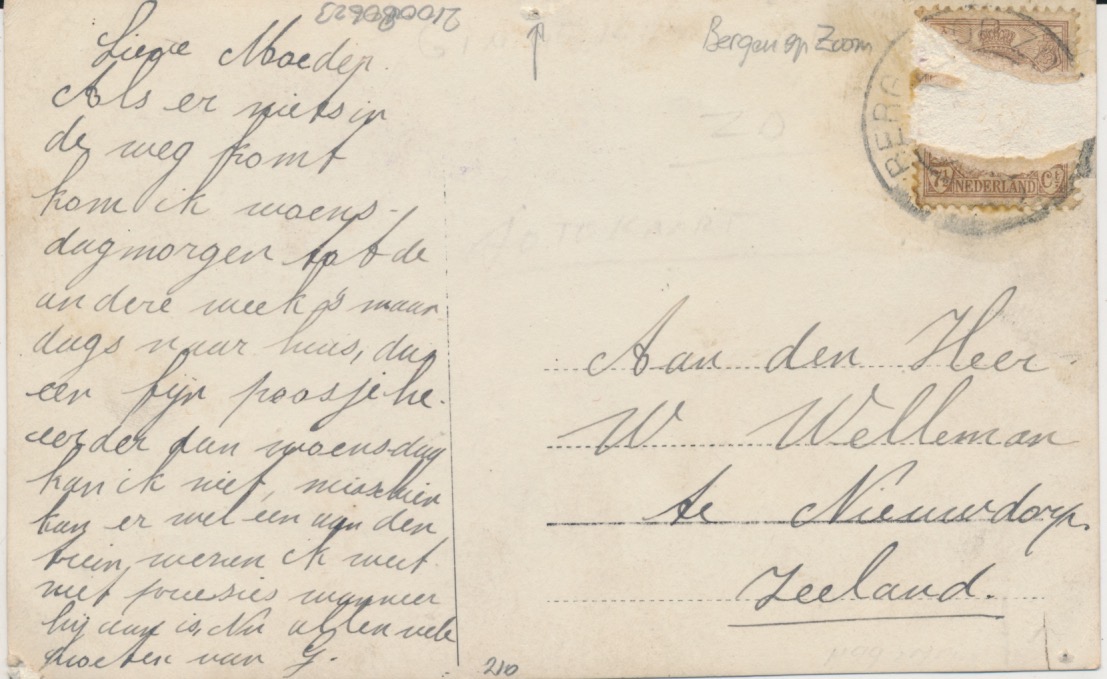 2100080623
Lieve Moeder.
Als er niets in
de weg komt
kom ik woens-
dagmorgen tot de
andere week 's maan
dags naar huis, dus
een fijn poosje he.
eerder dan woensdag
kan ik niet, misschien
kan er wel een aan den
trein wezen ik weet
niet presies wanneer
hij aan is, Nu allen vele
groeten van G.
210
Bergen op Zoom
BERG
7½ NEDERLAND Ct
ZO
FOTOKAART
Aan den Heer
W Welleman
te Nieuwdorp.
Zeeland.